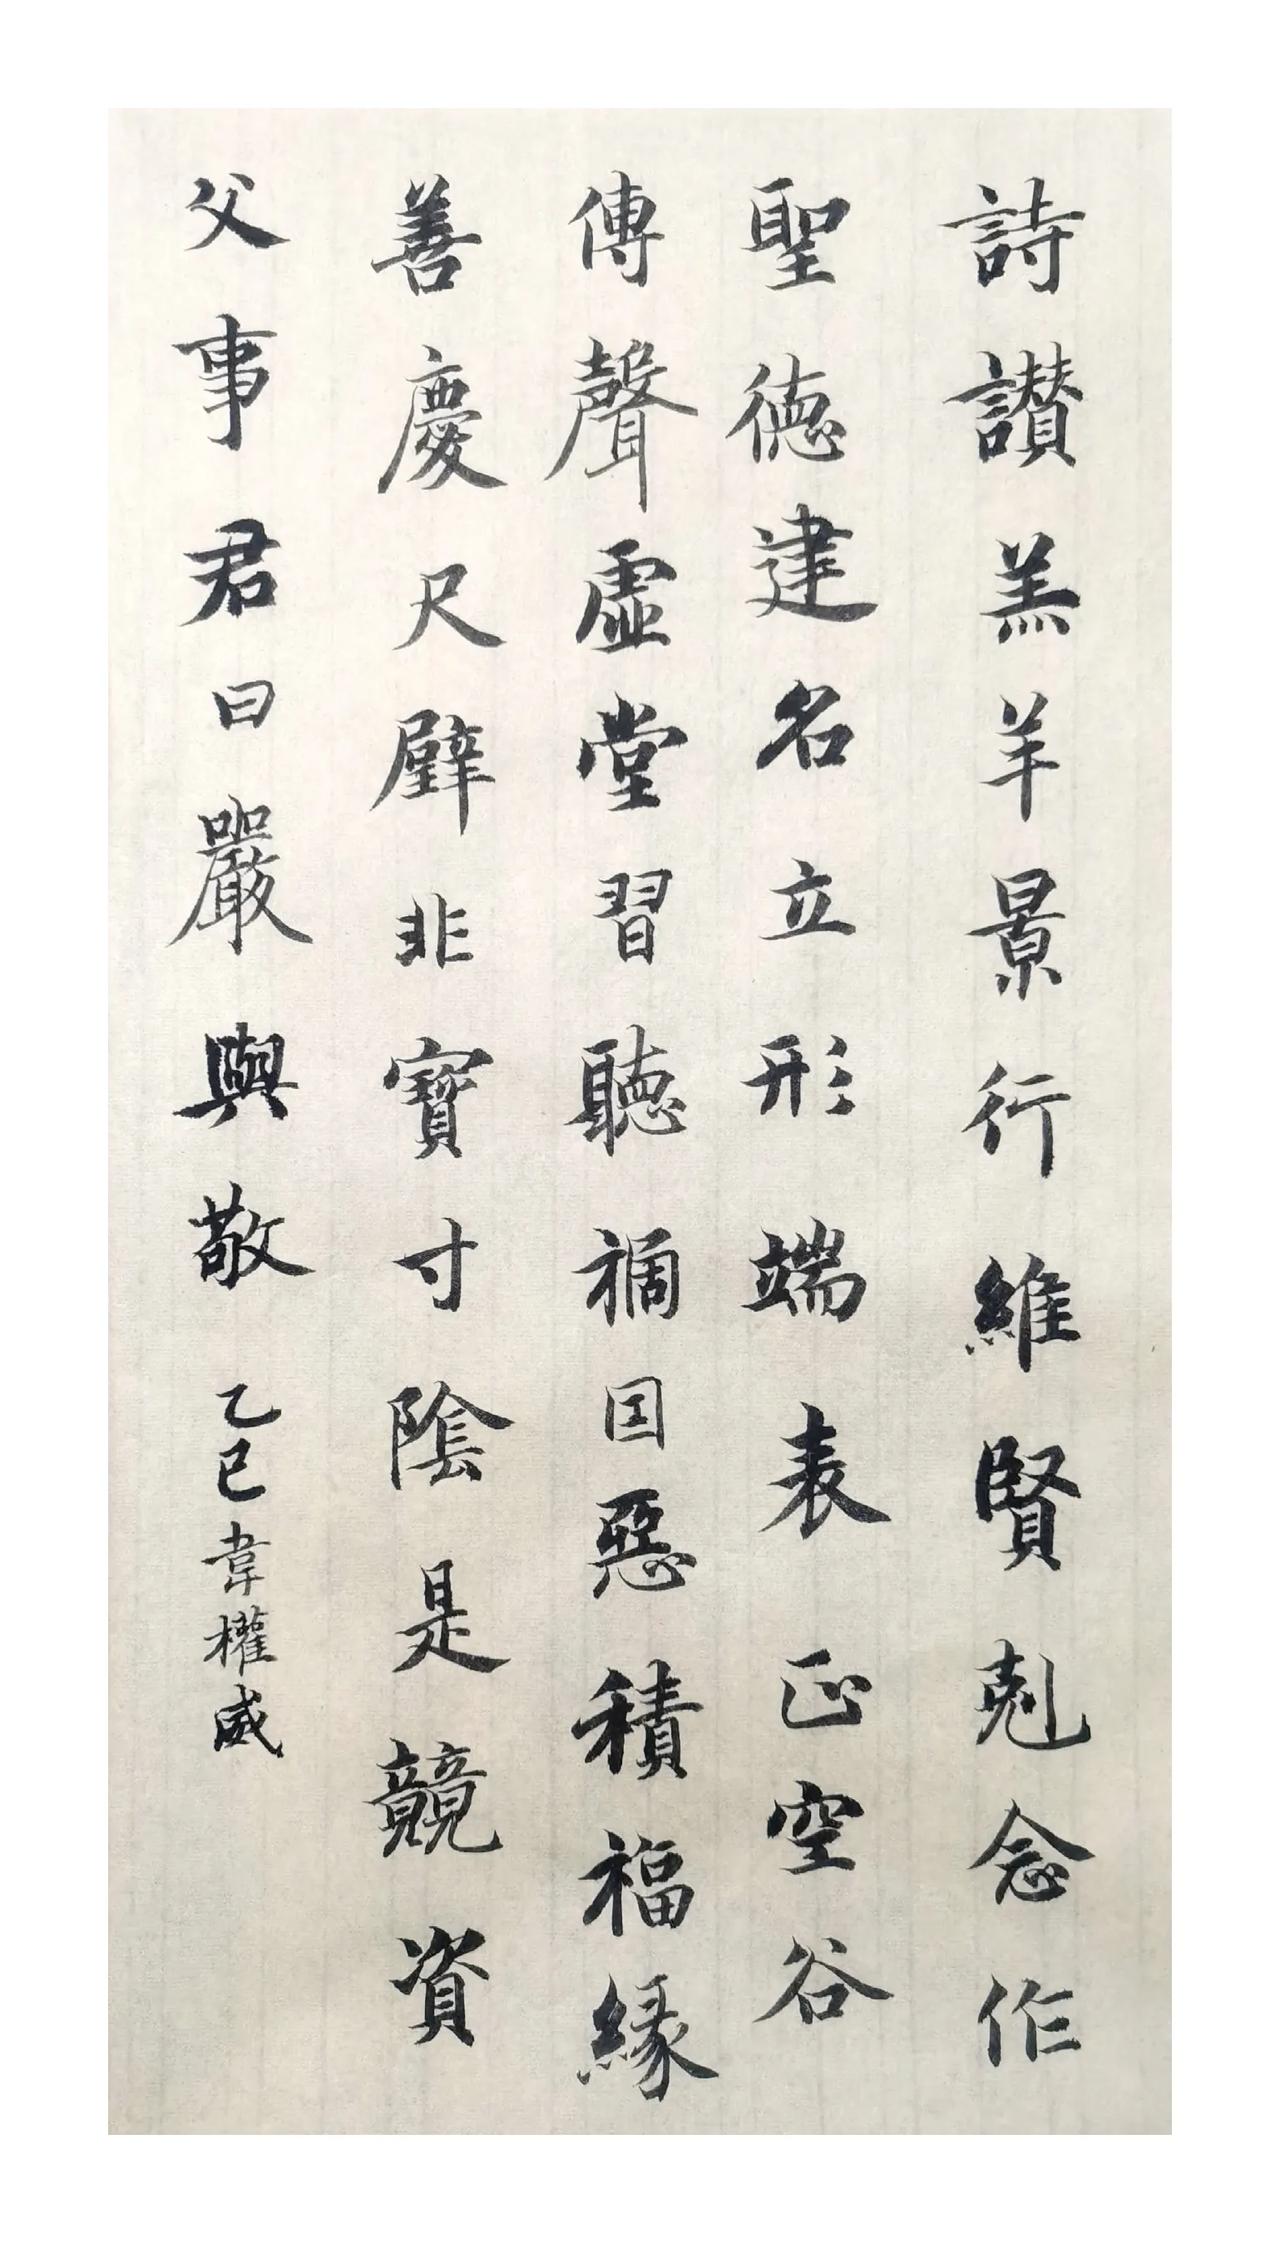 詩讃羔羊景行維賢剋念作
聖德建名立形端表正空谷
傳聲虛堂習聽禍因惡積福緣
善慶尺璧非寶寸陰是競資
父事君曰嚴與敬 乙巳韋權威